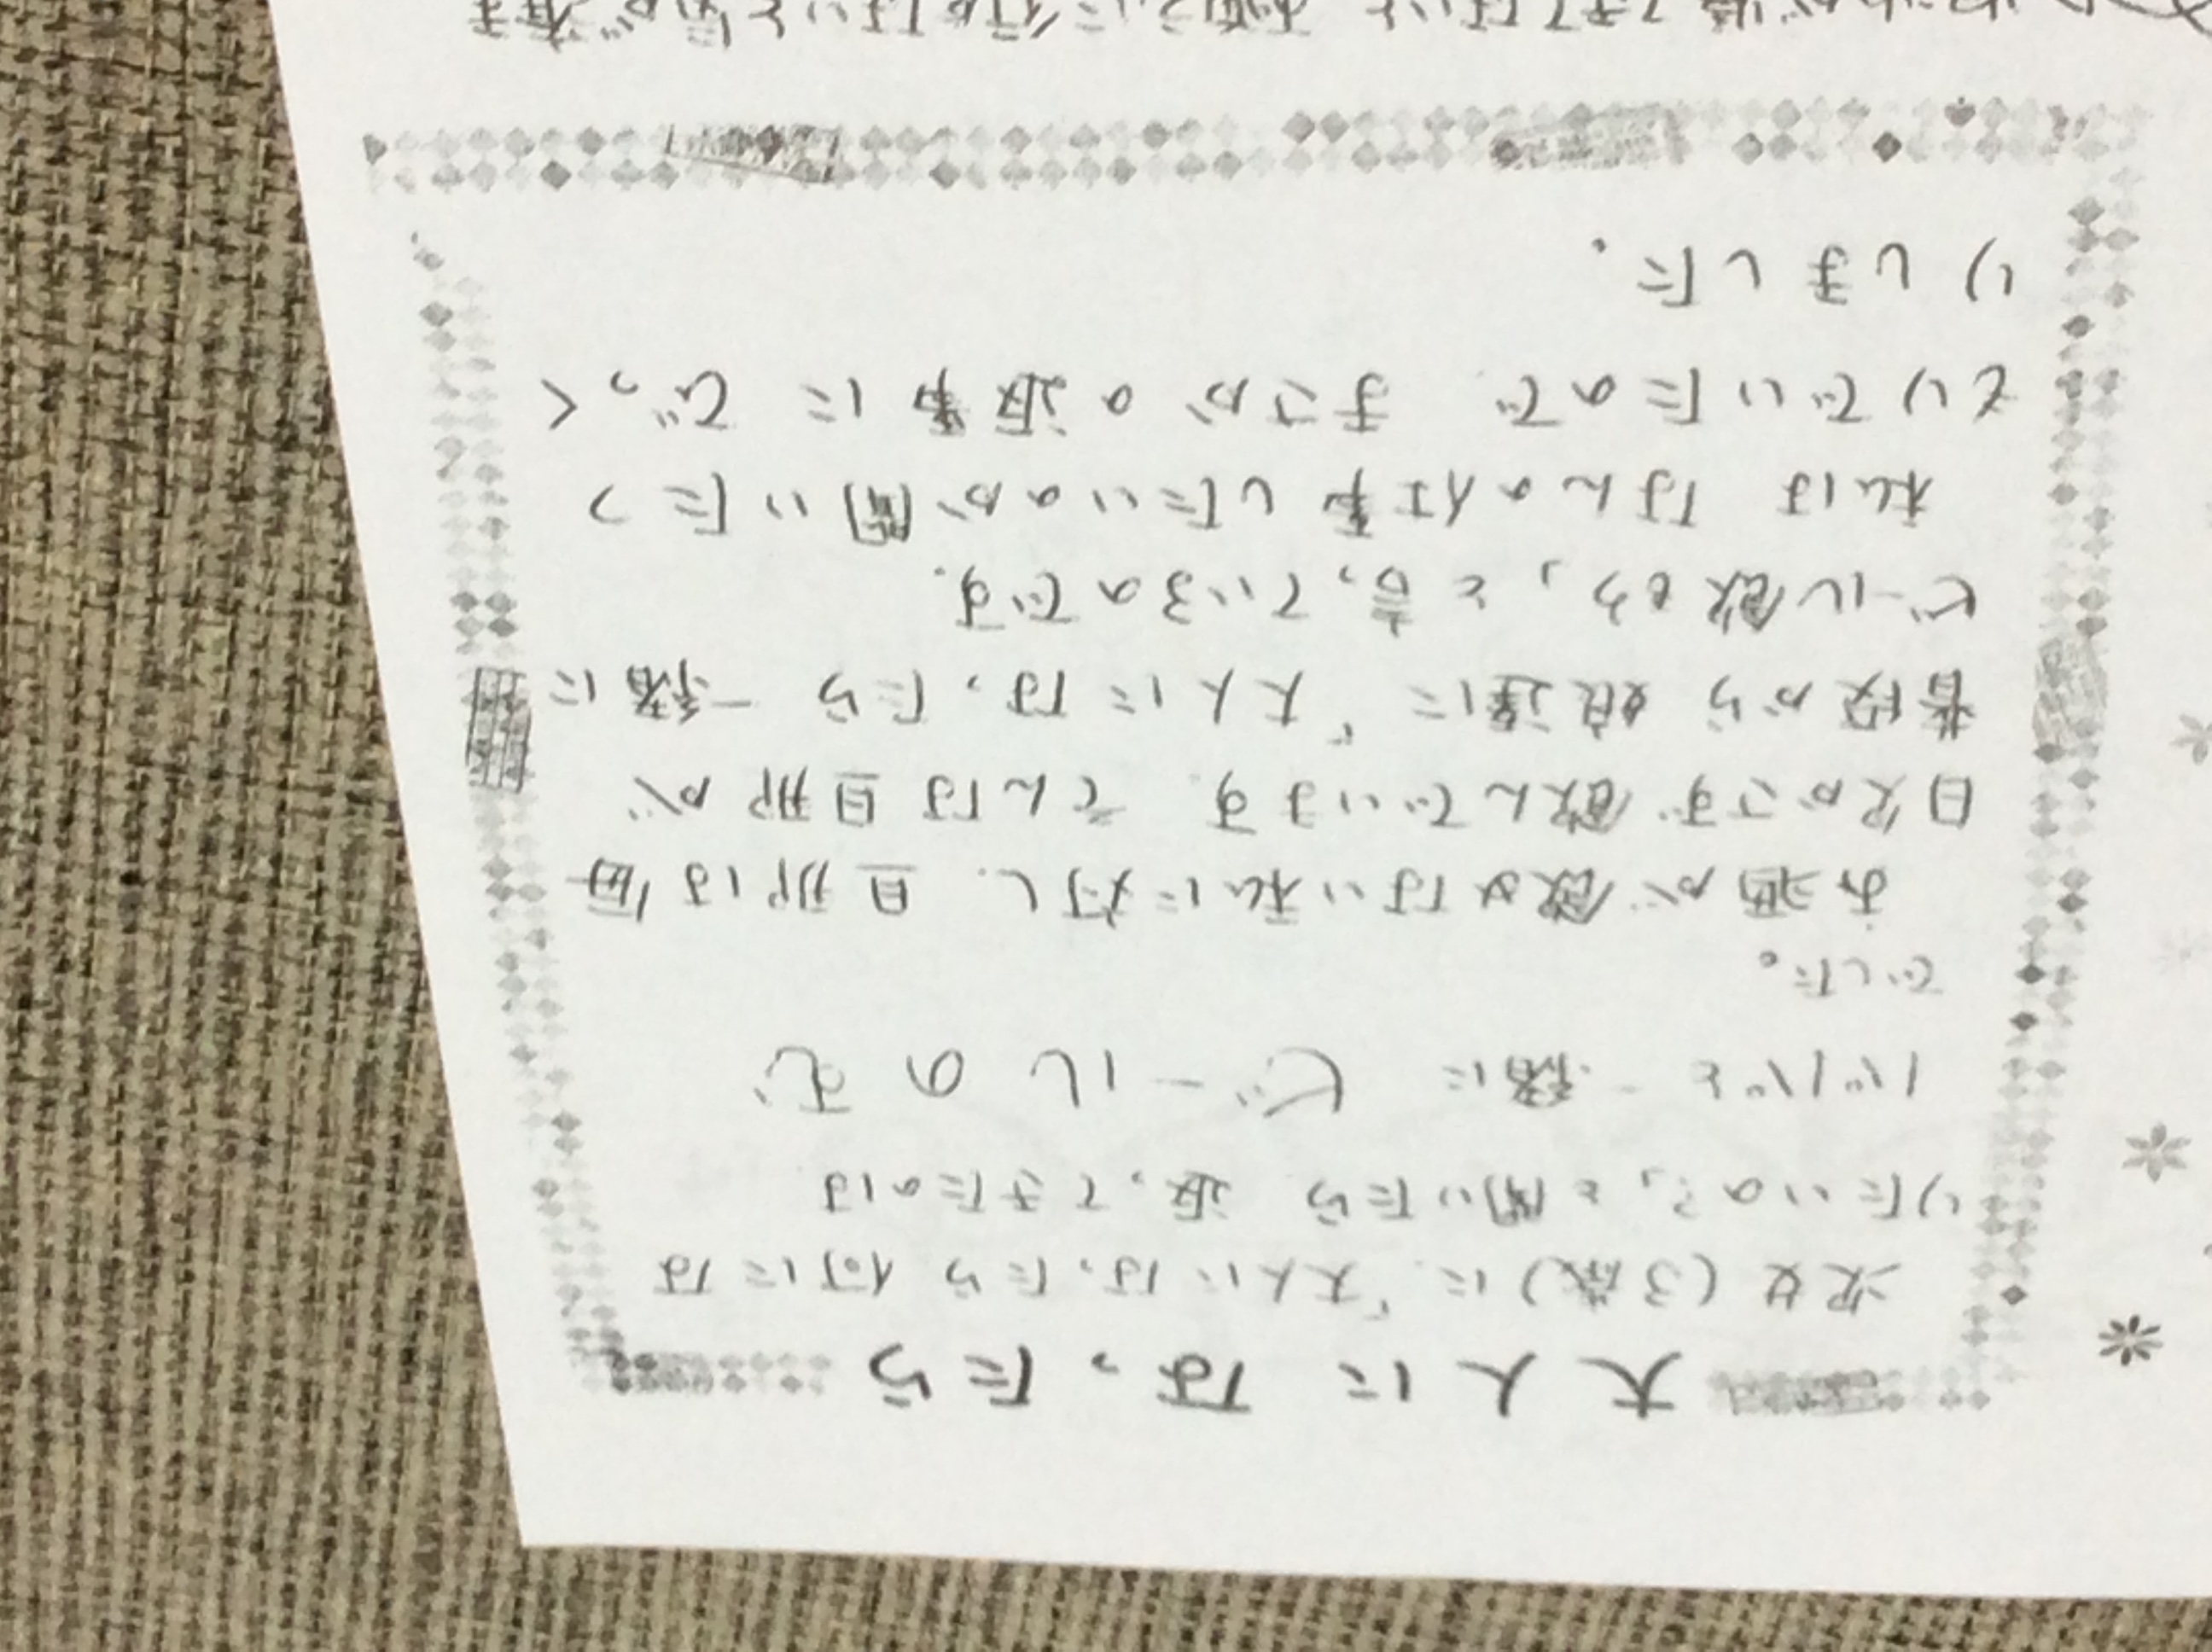 大人になったら
次女(3歳)に「大人になったら何にな
りたいの?」と聞いたら返ってきたのは
パパと一緒に ビールのむ
でした。
お酒が飲めない私に対し、旦那は毎
日欠かさず飲んでいます。そんな旦那が
普段から娘達に「大人になったら一緒に
ビール飲もう」と言っているのです。
私は なんの仕事したいのか聞いたつ
もりでいたので まさかの返事に びっく
りしました。